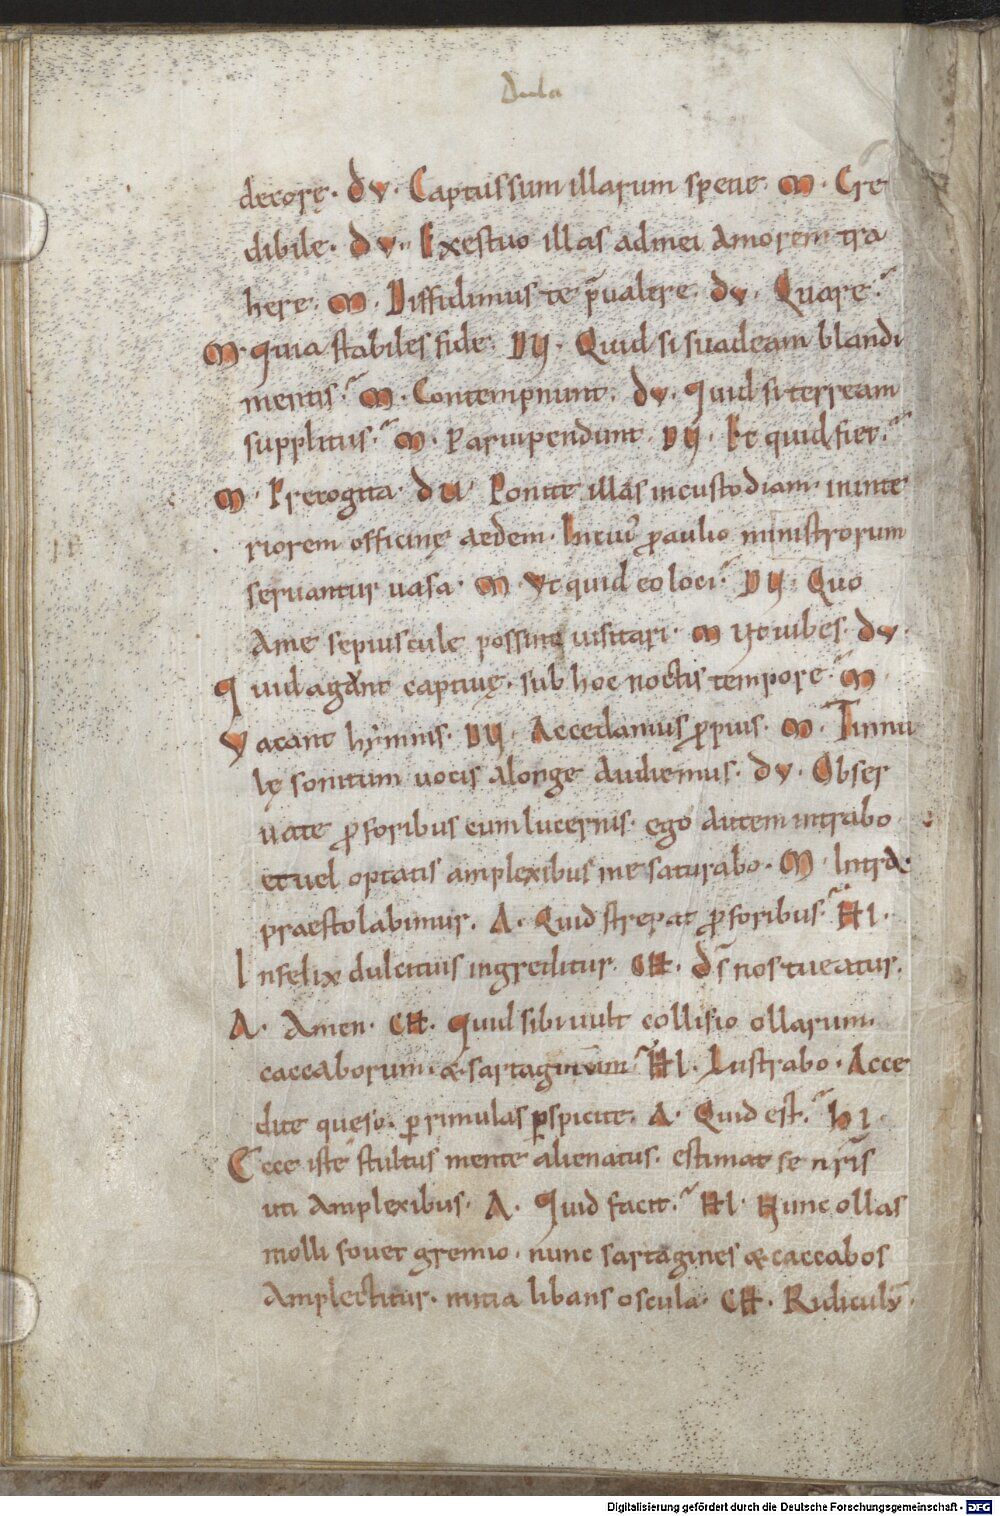 Aula
decorę. DV. Captus sum illarum specie. M. Cre
dibile. DV. Exestuo illas ad mei Amorem tra
here. M. Diffidimus te p̄ualere. DV. Quare?
M. quia stabiles fide. DU. Quid si suadeam blandi
mentis? M. Contempnunt. DV. quid si terream
suppliciis? M. Paruipendunt. DU. Et quid fiet?
M. Precogita. DU. Ponite illas in custodiam. in inte
riorem officinę aedem. In cui᷒ ꝓaulio ministrorum
seruantur uasa. M. Vt quid eo loci? DU. Quo
Ame sepiuscule possint uisitari. M. Vt iubes. DV.
Quid agant captiuę. sub hoc noctis tempore? M.
Vacant hymnis. DU. Accedamus ꝓpius. M. Tinnu
lę sonitum uocis a longe Audiemus. DV. Obser
uate ꝓ foribus cum lucernis. ego autem intrabo
et uel optatis amplexibus me saturabo. M. Intra.
praestolabimur. A. Quid strepat ꝓ foribus? HI.
Infelix dulcitius ingreditur. CH. d̄s nos tueatur.
A. Amen. CH. quid sibi uult collisio ollarum.
caccaborum. & sartaginum? HI. Lustrabo. Acce
dite queso. ꝑ rimulas ꝑspicite. A. Quid est? hI.
Ecce iste stultus mente alienatus. estimat se nr̄is
uti Amplexibus. A. quid facit? HI. Nunc ollas
molli fouet gremio. nunc sartagines & caccabos
Amplectitur. mitia libans oscula. CH. Ridiculū.
Digitalisierung gefördert durch die Deutsche Forschungsgemeinschaft - DFG